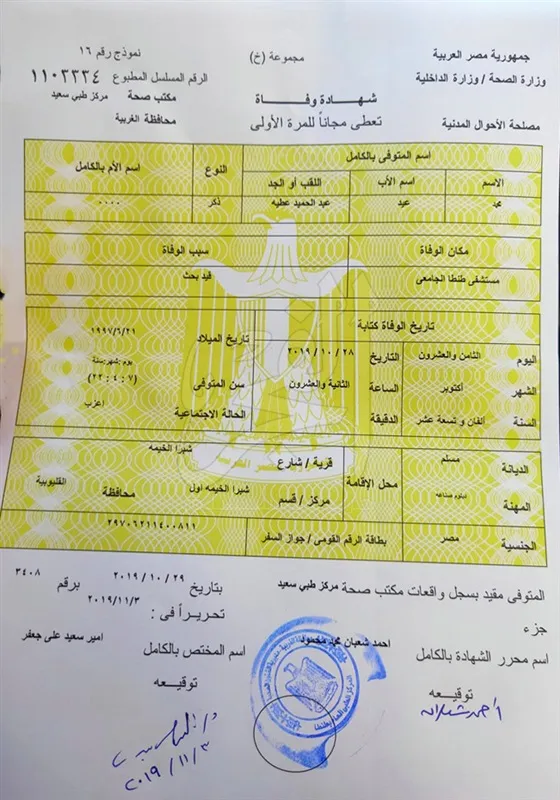 جمهورية مصر العربية
مجموعة (خ)
نموذج رقم ١٦
وزارة الصحة / وزارة الداخلية
الرقم المسلسل المطبوع ١١٠٣٣٣٤
شهادة وفاة
مكتب صحة مركز طبي سعيد
مصلحة الأحوال المدنية
تعطى مجاناً للمرة الأولى
محافظة الغربية
اسم المتوفى بالكامل
النوع
اسم الأم بالكامل
الاسم
اسم الأب
اللقب أو الجد
محمد
عيد
عبد الحميد عطيه
ذكر
٠٠٠٠
مكان الوفاة
سبب الوفاة
مستشفى طنطا الجامعى
قيد بحث
تاريخ الوفاة كتابة
تاريخ الميلاد
١٩٩٧/٦/٢١
اليوم
الثامن والعشرون
التاريخ
٢٠١٩ / ١٠ / ٢٨
الشهر
أكتوبر
الساعة
الثانية والعشرون
سن المتوفى
يوم : شهر : سنة
(٢٢ : ٤ : ٧)
السنة
ألفان و تسعة عشر
الدقيقة
الحالة الاجتماعية
اعزب
الديانة
مسلم
محل الإقامة
قرية / شارع
شبرا الخيمه
المهنة
دبلوم صناعه
مركز / قسم
شبرا الخيمه أول
محافظة
القليوبية
الجنسية
مصر
بطاقة الرقم القومى / جواز السفر
٢٩٧٠٦٢١١٤٠٠٨١١
المتوفى مقيد بسجل واقعات مكتب صحة مركز طبي سعيد
بتاريخ ٢٠١٩ / ١٠ / ٢٩ برقم ٣٤٠٨
جزء
تحريراً فى : ٢٠١٩/١١/٣
اسم محرر الشهادة بالكامل
احمد شعبان محمد محمود
اسم المختص بالكامل
امير سعيد على جعفر
توقيعه
توقيعه
أحمد شعبان
٢٠١٩/١١/٣